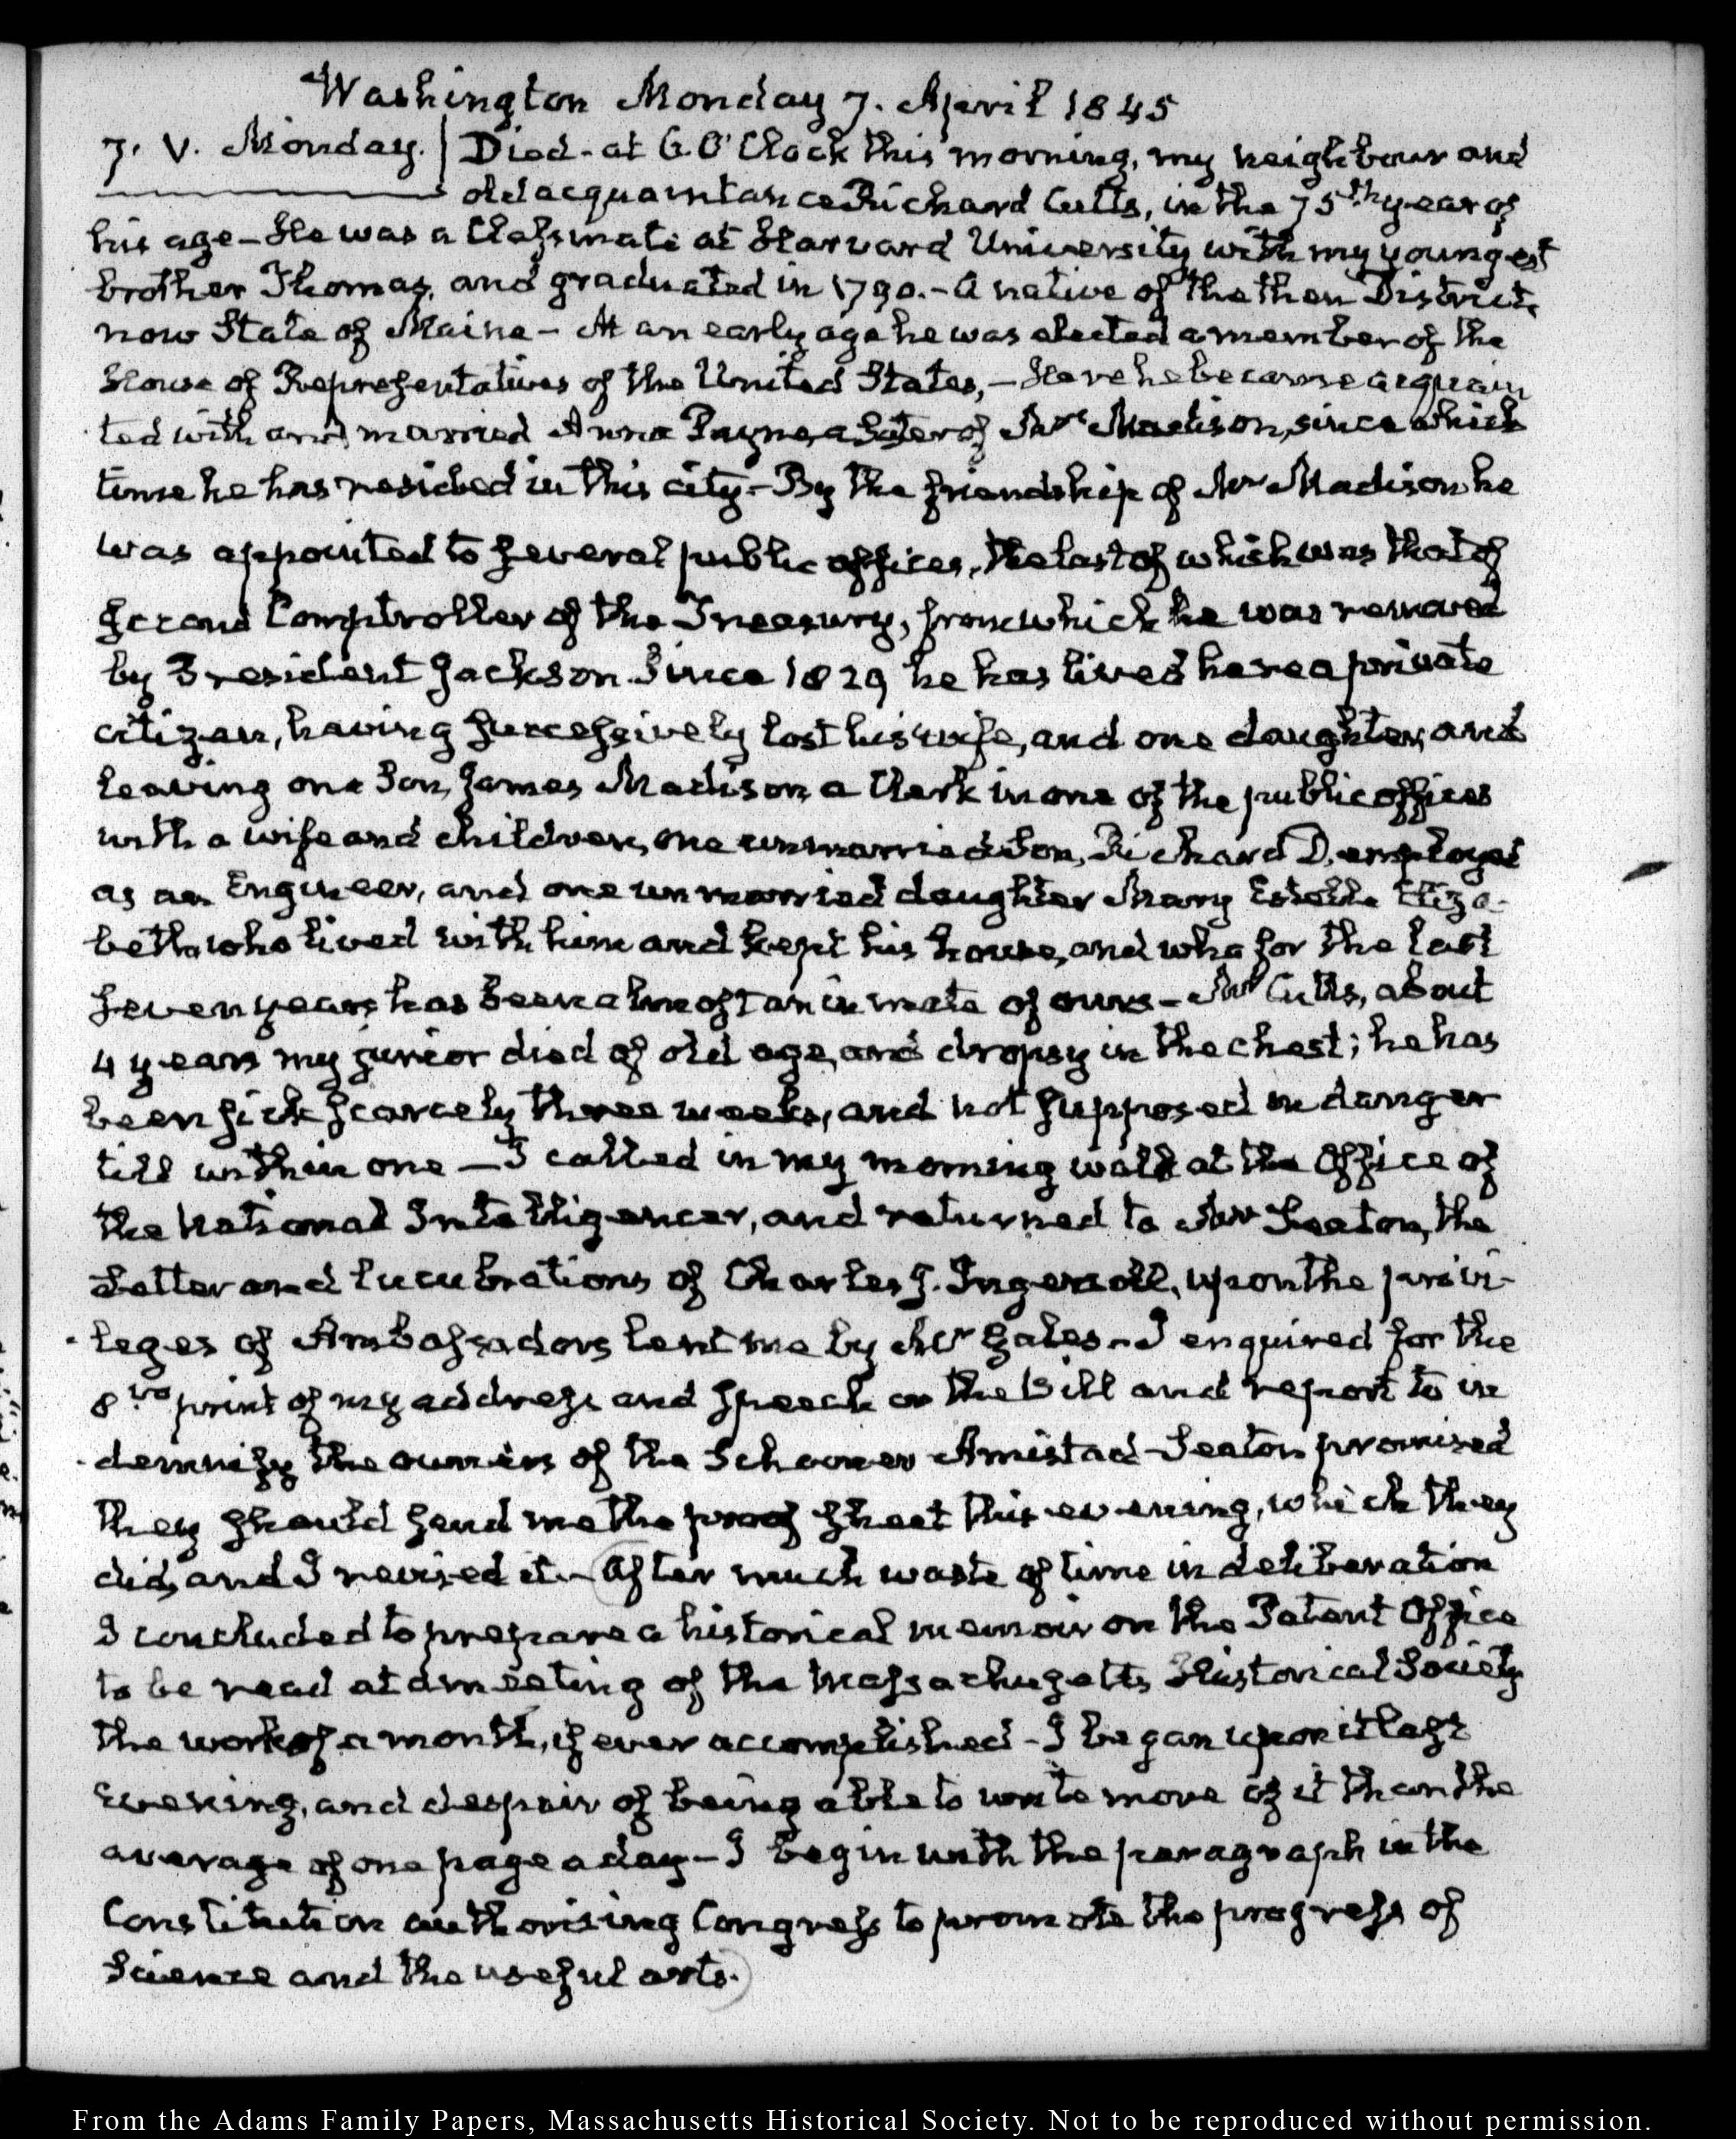 Washington Monday 7. April 1845
7. V. Monday. Died- at 6. O'Clock this morning, my neighbour and
old acquaintance Richard Cutts, in the 75th year of
his age – He was a Classmate at Harvard University with my youngest
brother Thomas, and graduated in 1790. – A native of the then District,
now State of Maine – At an early age he was elected a member of the
House of Representatives of the United States, – Here he became acquain
ted with and married Anna Payne, a Sister of Mrs Madison, since which
time he has resided in this city – By the friendship of Mr Madison he
was appointed to several public offices, the last of which was that of
second Comptroller of the Treasury, from which he was removed
by President Jackson. Since 1829 he has lived here a private
citizen, having successively lost his wife, and one daughter, and
leaving one Son, James Madison, a Clerk in one of the public offices
with a wife and children, one unmarried Son, Richard D. employed
as an Engineer, and one unmarried daughter Mary Estelle Eliza-
beth, who lived with him and kept his house, and who for the last
seven years has been almost an inmate of ours – Mr Cutts, about
4 years my junior died of old age, and dropsy in the chest; he has
been sick scarcely three weeks, and not supposed in danger
till within one – I called in my morning walk at the Office of
the National Intelligencer, and returned to Mr Seaton, the
Letter and lucubrations of Charles J. Ingersoll, upon the privi-
leges of Ambassadors lent me by Mr Gales – I enquired for the
8vo print of my address and speech on the Bill and report to in
demnify the owners of the Schooner Amistad – Seaton promised
they should send me the proof sheet this evening, which they
did, and I revised it – After much waste of time in deliberation
I concluded to prepare a historical memoir on the Patent Office
to be read at a meeting of the Massachusetts Historical Society
the work of a month, if ever accomplished – I began upon it last
evening, and despair of being able to write more of it than the
average of one page a day – I begin with the paragraph in the
Constitution authorising Congress to promote the progress of
Science and the useful arts.
From the Adams Family Papers, Massachusetts Historical Society. Not to be reproduced without permission.